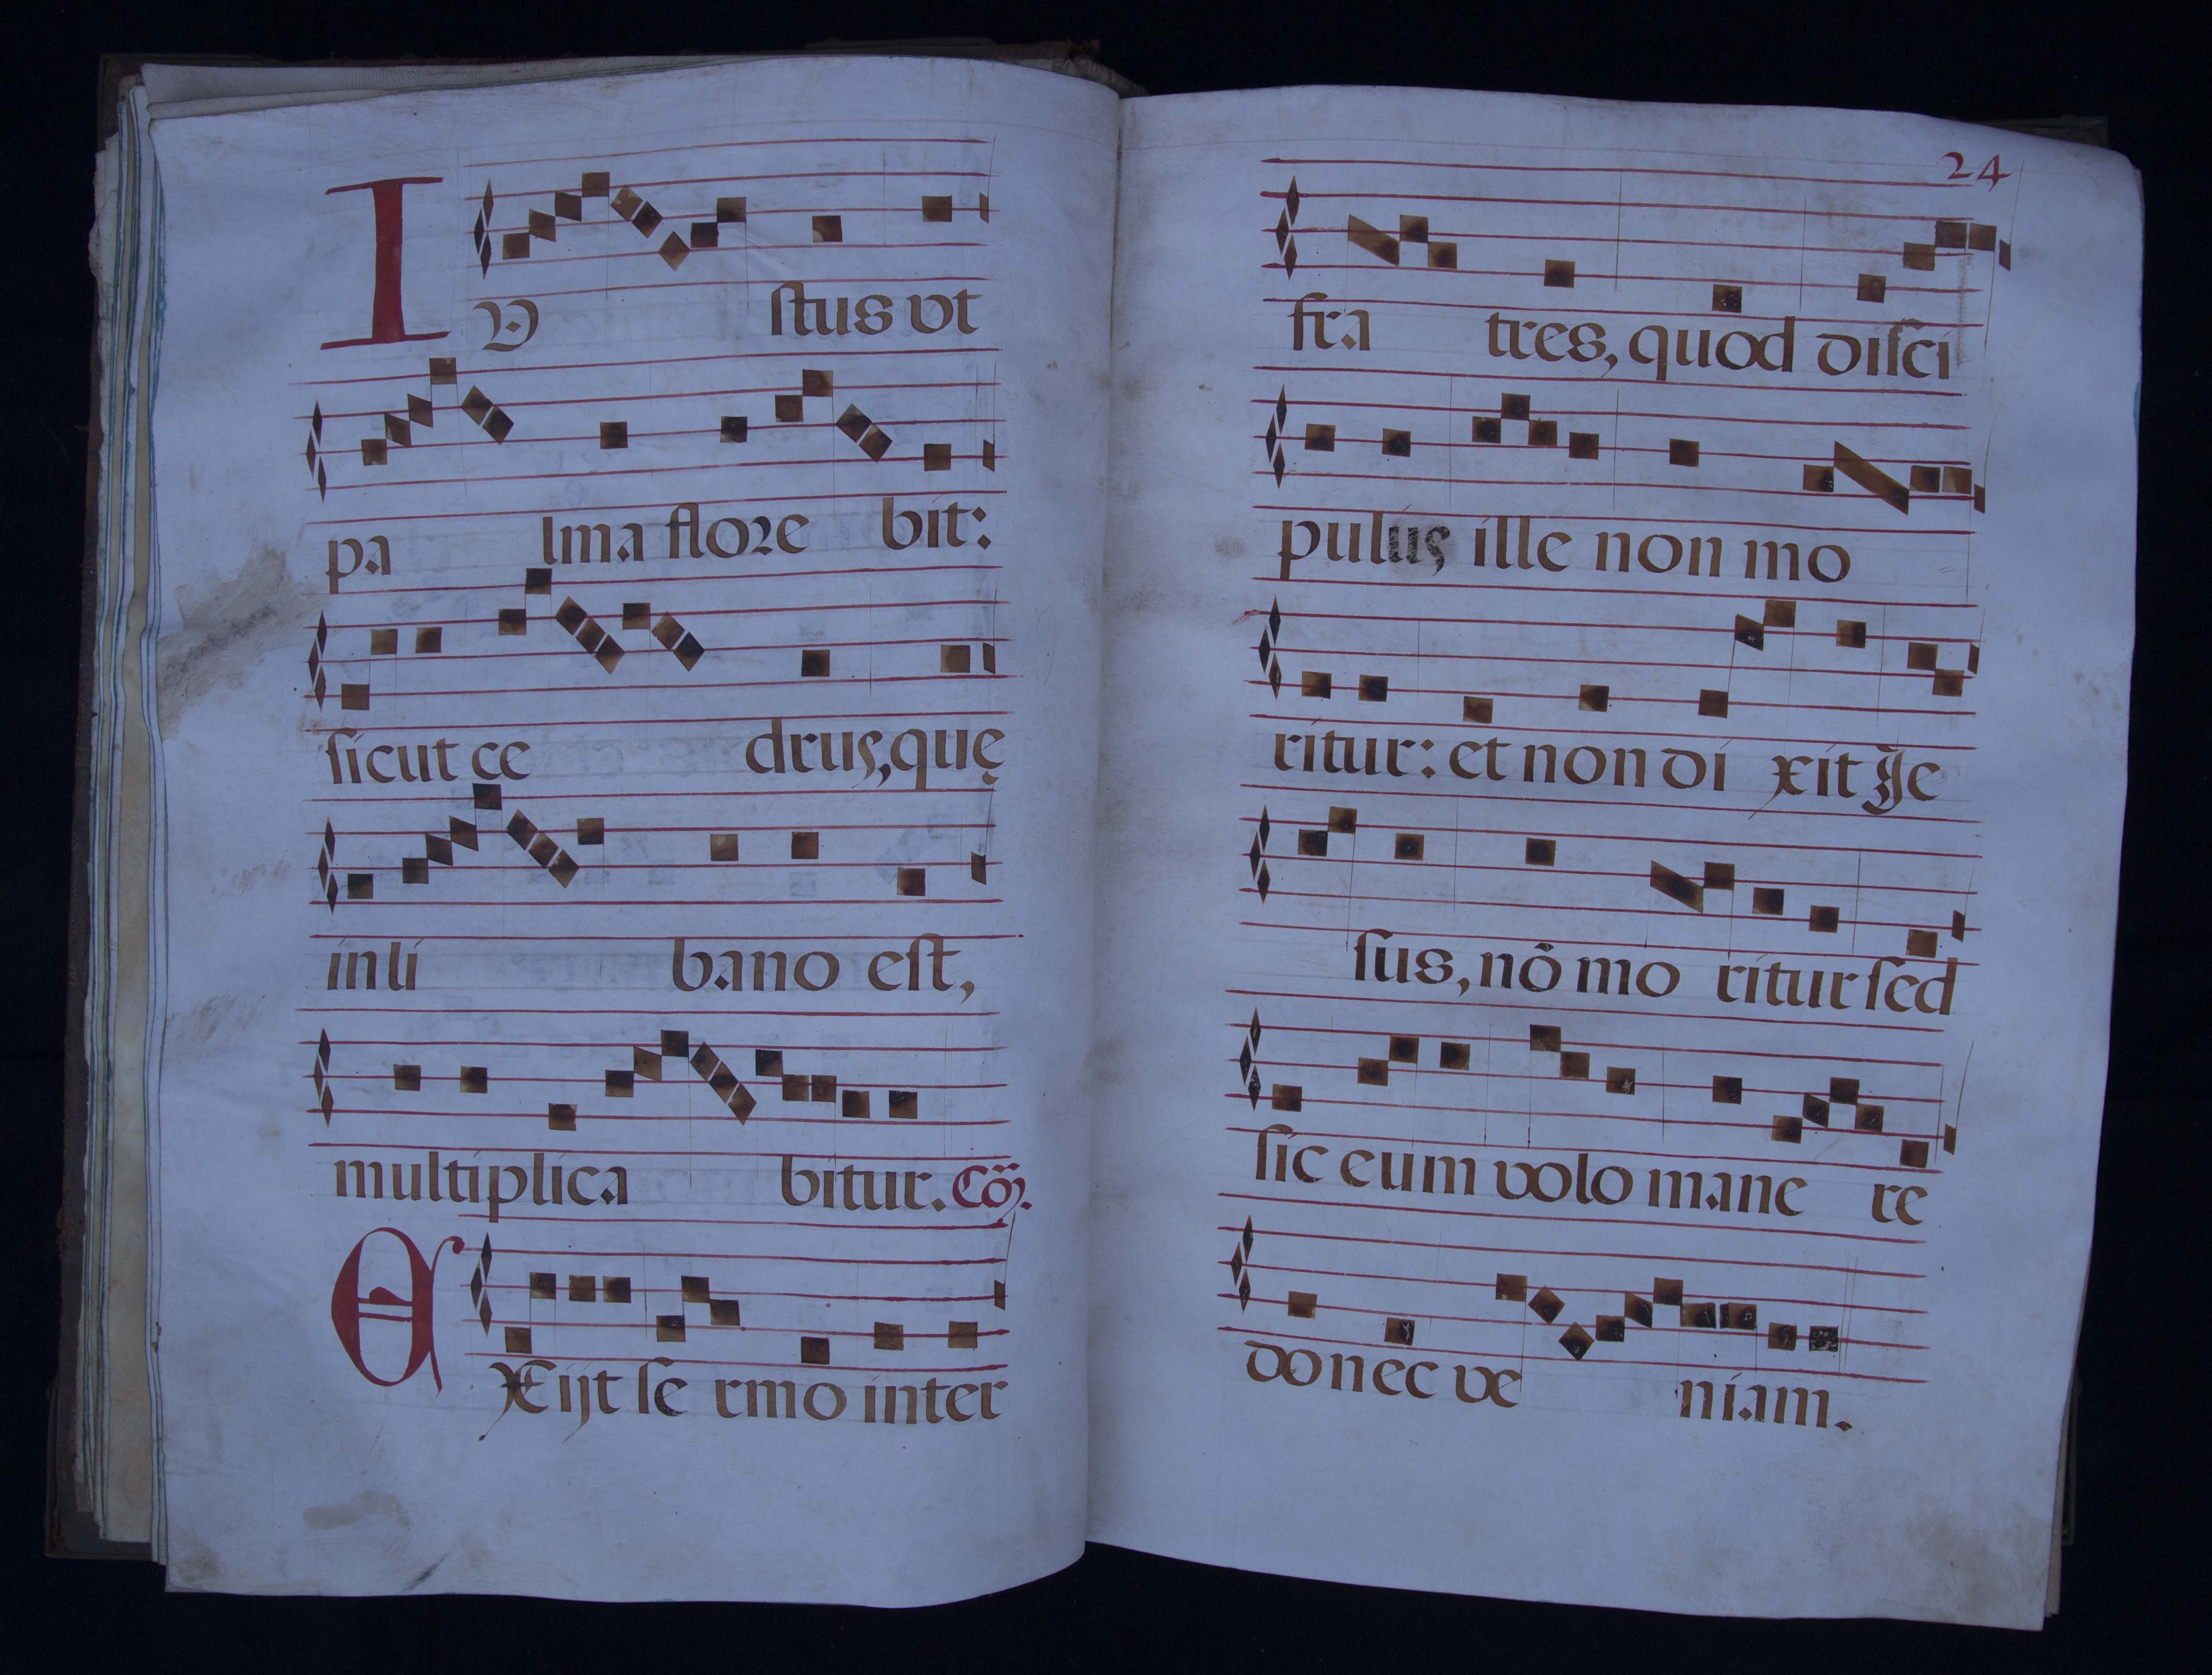 IV ſtus vt
pa lma flore bit:
ſicut ce drus, quę
in li bano eſt,
multiplica bitur. Cõ.
EXijt ſe rmo inter
24
fra tres, quod diſci
pulus ille non mo
ritur: et non di xit Je
ſus, nõ mo ritur ſed
ſic eum volo mane re
donec ve niam.